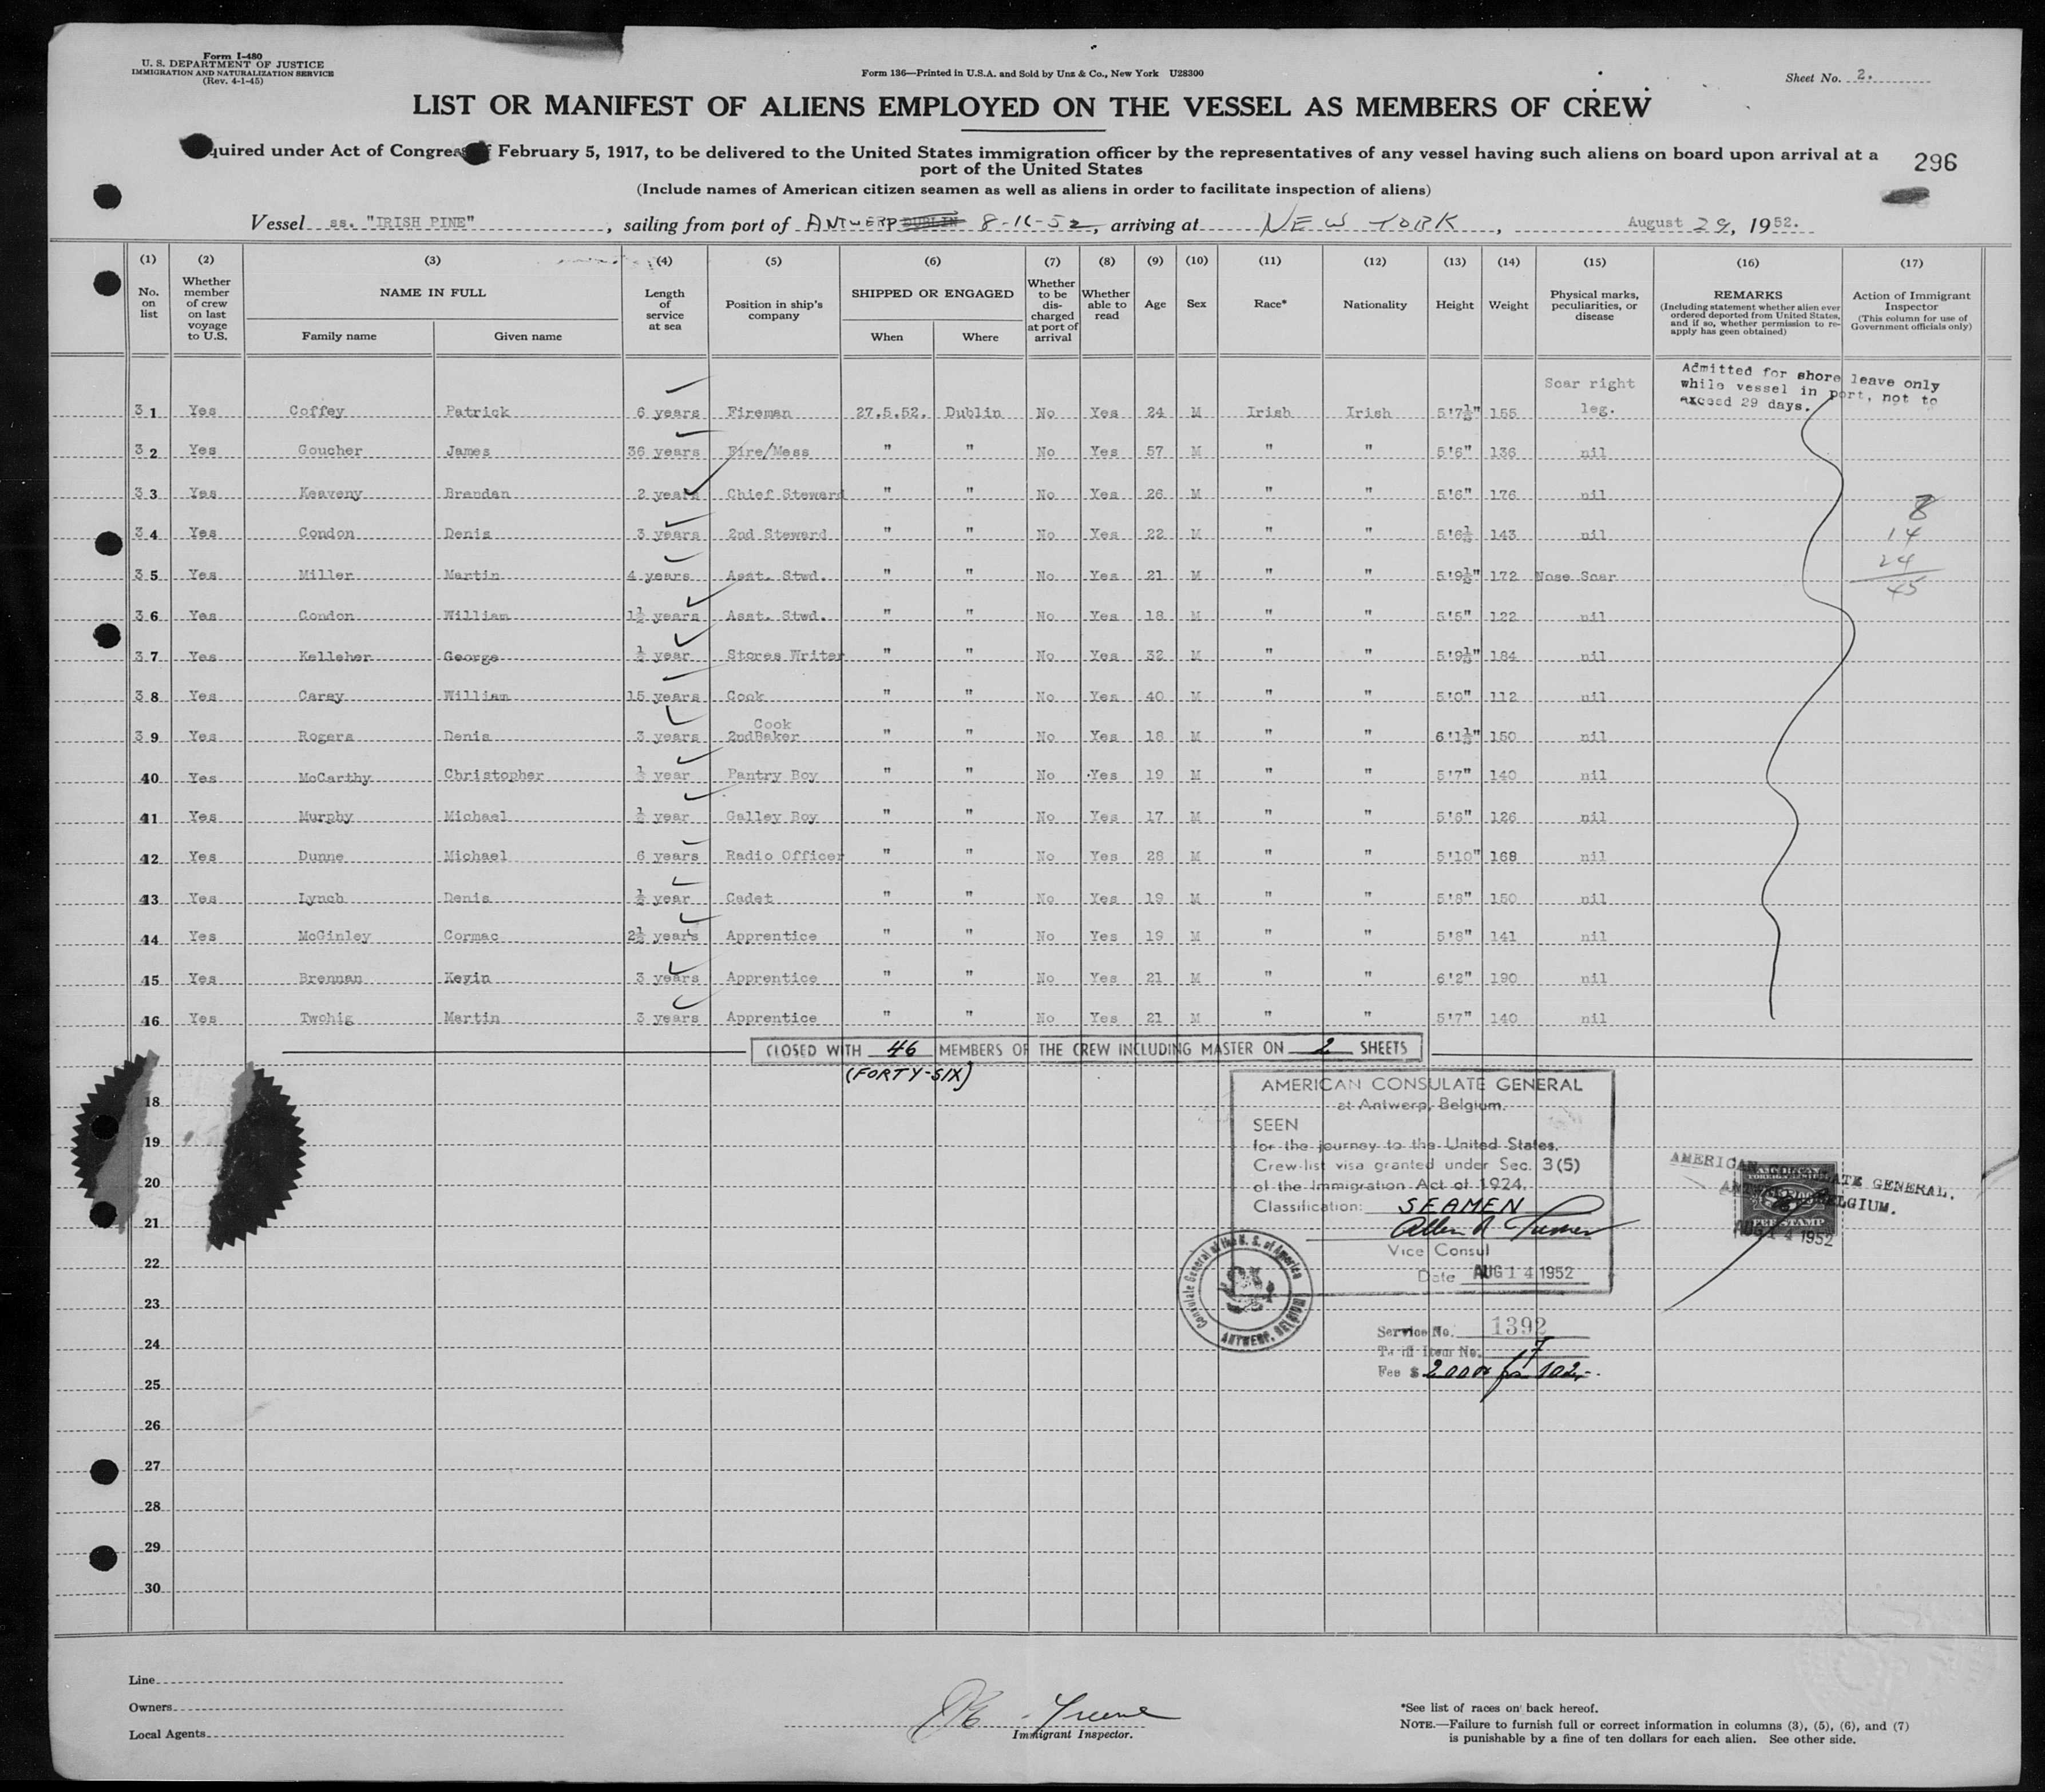 Form I-480
U. S. DEPARTMENT OF JUSTICE
IMMIGRATION AND NATURALIZATION SERVICE
(Rev. 4-1-45)
Form 136—Printed in U.S.A. and Sold by Unz & Co., New York U28300
Sheet No. 2.
LIST OR MANIFEST OF ALIENS EMPLOYED ON THE VESSEL AS MEMBERS OF CREW
quired under Act of Congress of February 5, 1917, to be delivered to the United States immigration officer by the representatives of any vessel having such aliens on board upon arrival at a
port of the United States
296
(Include names of American citizen seamen as well as aliens in order to facilitate inspection of aliens)
Vessel ss. "IRISH PINE", sailing from port of ANTWERP DUBLIN 8-16-52, arriving at NEW YORK, August 29, 1952.
(1) (2) (3) (4) (5) (6) (7) (8) (9) (10) (11) (12) (13) (14) (15) (16) (17)
No. on list
Whether member of crew on last voyage to U.S.
NAME IN FULL
Family name Given name
Length of service at sea
Position in ship's company
SHIPPED OR ENGAGED
When Where
Whether to be discharged at port of arrival
Whether able to read
Age Sex Race* Nationality Height Weight
Physical marks, peculiarities, or disease
REMARKS
(Including statement whether alien ever ordered deported from United States, and if so, whether permission to re-apply has geen obtained)
Action of Immigrant Inspector
(This column for use of Government officials only)
Admitted for shore leave only
while vessel in port, not to
exceed 29 days.
31 Yes Coffey Patrick 6 years Fireman 27.5.52. Dublin No Yes 24 M Irish Irish 5'7½" 155 Scar right leg.
32 Yes Goucher James 36 years Fire/Mess " " No Yes 57 M " " 5'6" 136 nil
33 Yes Keaveny Brendan 2 years Chief Steward " " No Yes 26 M " " 5'6" 176 nil
34 Yes Condon Denis 3 years 2nd Steward " " No Yes 22 M " " 5'6½ 143 nil
35 Yes Miller Martin 4 years Asst. Stwd. " " No Yes 21 M " " 5'9½" 172 Nose Scar
36 Yes Condon William 1½ years Asst. Stwd. " " No Yes 18 M " " 5'5" 122 nil
37 Yes Kelleher George ½ year Stores Writer " " No Yes 32 M " " 5'9½" 184 nil
38 Yes Carey William 15 years Cook " " No Yes 40 M " " 5'0" 112 nil
39 Yes Rogers Denis 3 years Cook 2ndBaker " " No Yes 18 M " " 6'1½" 150 nil
40 Yes McCarthy Christopher ½ year Pantry Boy " " No Yes 19 M " " 5'7" 140 nil
41 Yes Murphy Michael ½ year Galley Boy " " No Yes 17 M " " 5'6" 126 nil
42 Yes Dunne Michael 6 years Radio Officer " " No Yes 28 M " " 5'10" 168 nil
43 Yes Lynch Denis ½ year Cadet " " No Yes 19 M " " 5'8" 150 nil
44 Yes McGinley Cormac 2½ years Apprentice " " No Yes 19 M " " 5'8" 141 nil
45 Yes Brennan Kevin 3 years Apprentice " " No Yes 21 M " " 6'2" 190 nil
46 Yes Twohig Martin 3 years Apprentice " " No Yes 21 M " " 5'7" 140 nil
14
24
45
CLOSED WITH 46 MEMBERS OF THE CREW INCLUDING MASTER ON 2 SHEETS
(FORTY-SIX)
18
19
20
21
22
23
24
25
26
27
28
29
30
AMERICAN CONSULATE GENERAL
at Antwerp, Belgium.
SEEN
for the journey to the United States.
Crew-list visa granted under Sec. 3(5)
of the Immigration Act of 1924.
Classification: SEAMEN
Allen R Turner
Vice Consul
Date AUG 14 1952
Consulate General of the U. S. of America
ANTWERP, BELGIUM
Service No. 1392
Tariff Item No. 7
Fee $
AMERICAN CONSULATE GENERAL.
ANTWERP, BELGIUM.
FEE STAMP
AUG 14 1952
Line
Owners
Local Agents
Greene
Immigrant Inspector.
*See list of races on back hereof.
NOTE.—Failure to furnish full or correct information in columns (3), (5), (6), and (7)
is punishable by a fine of ten dollars for each alien. See other side.